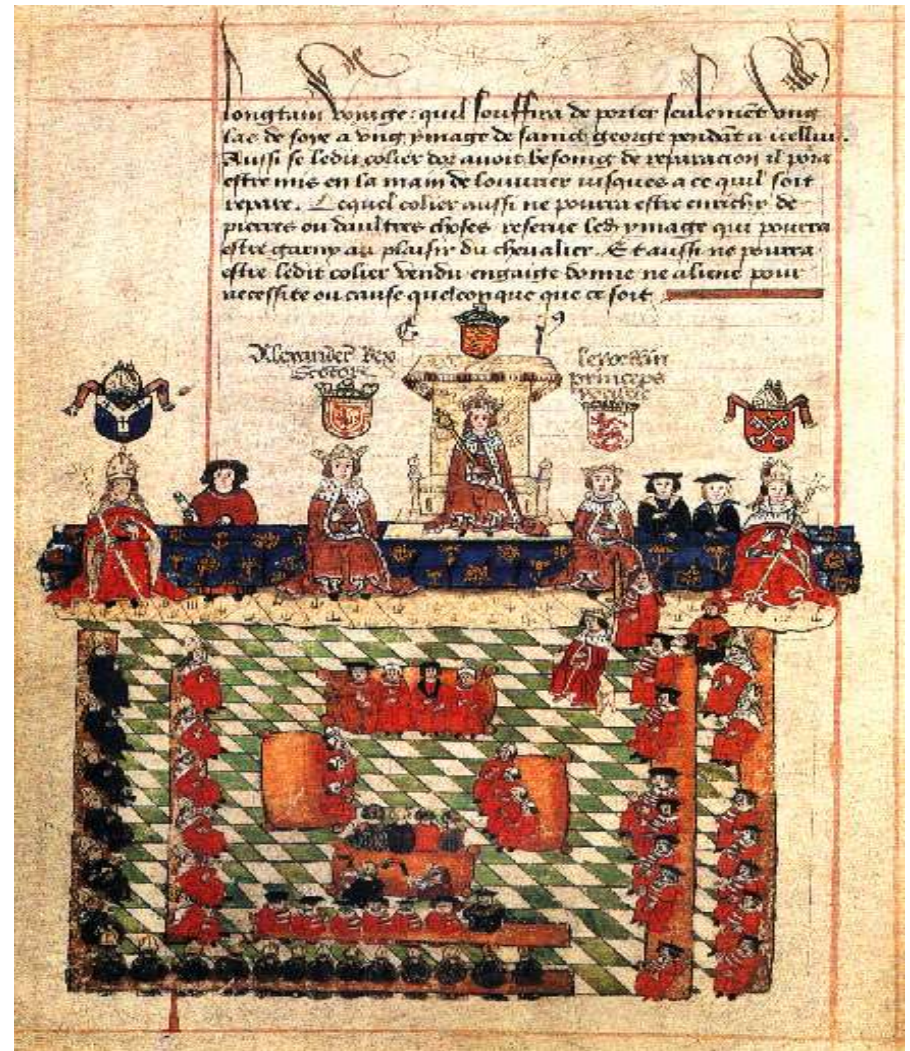 longtain voiage: quil souffira de porter seulement ung
las de soye a ung ymage de sainct george pendāt a icelluy.
Aussi se ledit colier dor auoit besoing de reparacion il pora
estre mis en la main de louurier iusques a ce quil soit
repare. Lequel colier aussi ne pourra estre enrichy de
pierres ou daultres choses reserue led ymage qui pourra
estre garny au plaisir du cheualier. Et aussi ne pourra
estre ledit colier vendu engaige donne ne aliene pour
necessite ou cause quelconque que ce soit
Alexander Rex
Scotor
princeps